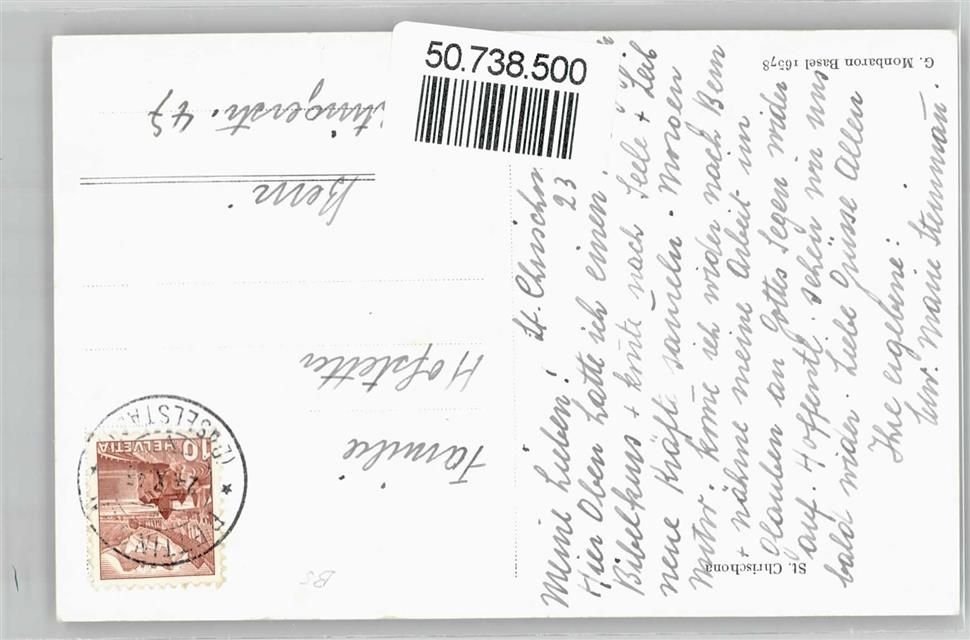 50.738.500
G. Monbaron Basel 16578
St. Chrischona
St. Chrischo
23
Meine Lieben!
Hier Oben hatte ich einen
Bibelkurs + konnte nach Seele + Leib
neue Kräfte sammeln. Morgen
Mittw. komme ich wider nach Bern
+ nähme meine Arbeit im
Glauben an Gottes Segen wider
auf. Hoffentl. sehen wir uns
bald wider. Liebe Grüsse Allen
Ihre ergebene:
Schw. Marie Steinmann.
Familie
Hofstetter
Bern
47
HELVETIA
10
BS